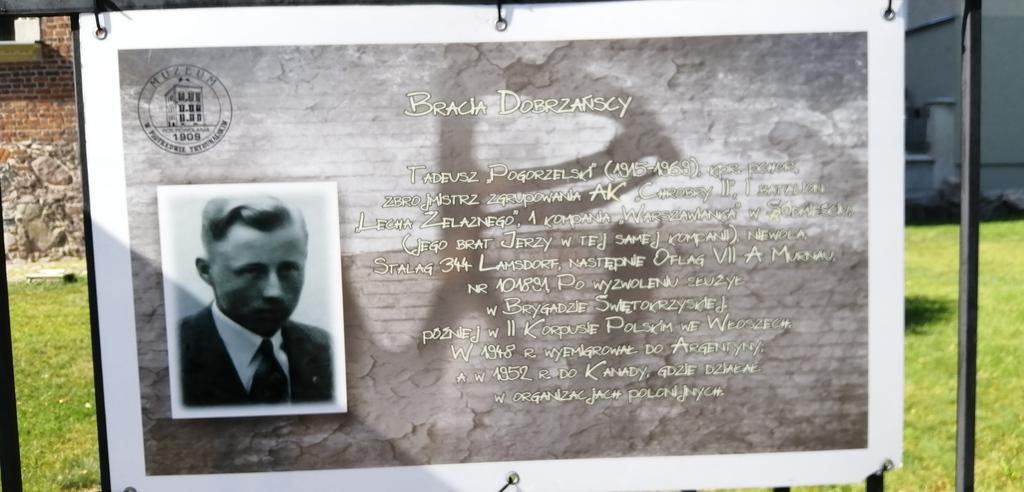 MUZEUM
ROK POWOŁANIA
1909
W PIOTRKOWIE TRYBUNALSKIM
BRACIA DOBRZAŃSCY
TADEUSZ „POGORZELSKI” (1915-1969), KPR. PCHOR.
ZBROJMISTRZ ZGRUPOWANIA AK „CHROBRY II”, I BATALION
„LECHA ŻELAZNEGO”, 1 KOMPANIA „WARSZAWIANKA” W
(JEGO BRAT JERZY W TEJ SAMEJ KOMPANII). NIEWOLA
STALAG 344 LAMSDORF, NASTĘPNIE OFLAG VII A MURNAU,
NR 101891. PO WYZWOLENIU SŁUŻYŁ
W BRYGADZIE ŚWIĘTOKRZYSKIEJ,
PÓŹNIEJ W II KORPUSIE POLSKIM WE WŁOSZECH.
W 1948 R. WYEMIGROWAŁ DO ARGENTYNY,
A W 1952 R. DO KANADY, GDZIE DZIAŁAŁ
W ORGANIZACJACH POLONIJNYCH.